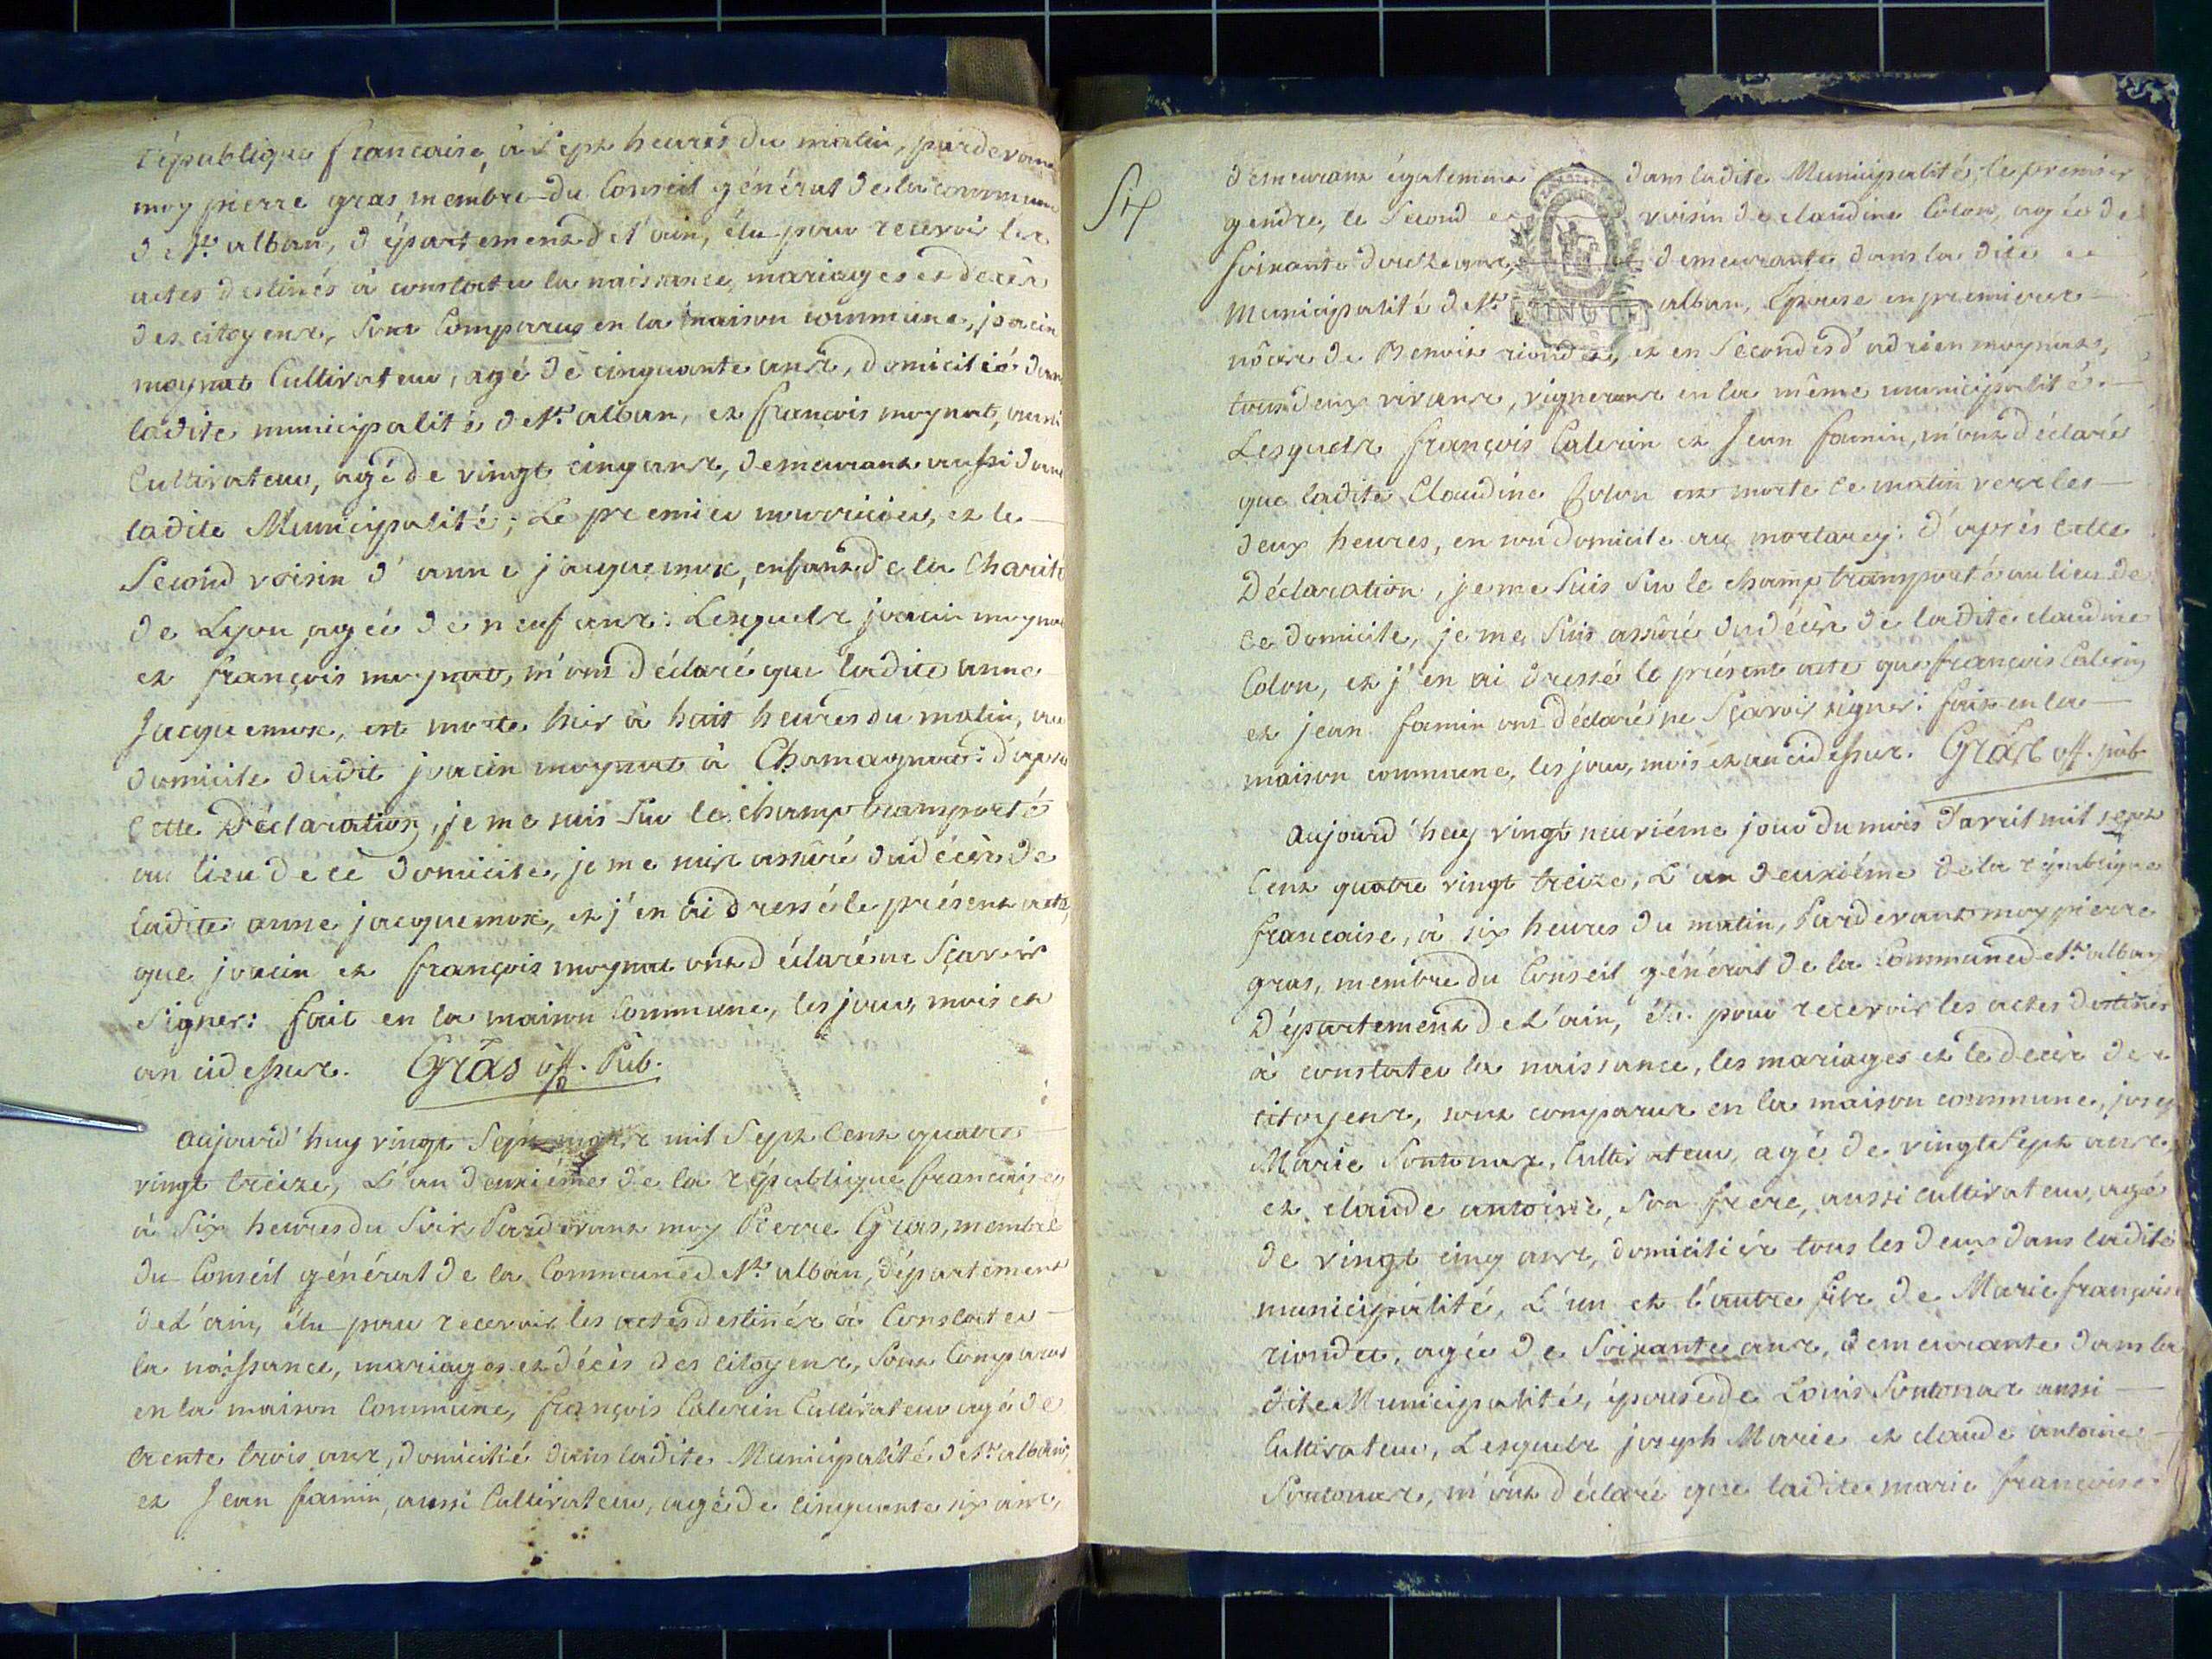 république francaise, à Sept heures du matin, pardevant
moy pierre gras membre du Conseil général de la commune
de St. alban, département de l'ain, élu pour recevoir les
actes destinés à constater la naissance, mariages et decès
des citoyens, Sont Comparus en la maison commune, joacin
moynat Cultivateur, agé de cinquante ans, domicilié dans
ladite municipalité de St. alban, et françois moynat, aussi
Cultivateur, agé de vingt cinq ans, demeurant aussi dans
ladite Municipalité; Le premier nourricier, et le
Second voisin d'anne jacquemox, enfant de la Charité
de Lyon, agée de neuf ans: Lesquels joacin moynat
et françois moynat, m'ont déclaré que ladite anne
Jacquemox, est morte hier à huit heures du matin, au
domicile dudit joacin moynat à Chamagnat: d'après
Cette Déclaration, je me suis Sur le champ transporté
au lieu de ce domicile, je me suis assûré du décès de
ladite anne jacquemox, et j'en ai dressé le présent acte,
que joacin et françois moynat ont déclaré ne Sçavoir
Signer: fait en la maison Commune, les jour, mois et
an cidessus. Gras off. Pub.
Aujourd'huy vingt Sept mars mil Sept Cent quatre
vingt treize, L'an deuxiéme de la république francaise,
à Six heures du Soir Pardevant moy Pierre Gras, membre
du Conseil général de la Commune de St. alban, département
de L'ain, élu pour recevoir les actes destinés à Constater
la naissance, mariages et décès des citoyens, Sont Comparus
en la maison Commune, françois Calerin Cultivateur agé de
trente trois ans, domicilié dans ladite Municipalité de St. alban,
et Jean famin, aussi Cultivateur, agé de cinquante six ans,
Six
demeurant également dans ladite Municipalité, le premier
gendre, le Second et voisin de claudine Colon, agée de
Soixante douze ans, demeurante dans la dite
Municipalité de St. alban, Epouse en premieres
nôces de Benoit riondet, et en Secondes d'adrien moynat,
tous deux vivans, vignerons en la même municipalité.
Lesquels françois Calerin et Jean famin, m'ont déclaré
que ladite Claudine Colon est morte ce matin vers les
deux heures, en son domicile au mortarey: d'après cette
Déclaration, je me Suis Sur le champ transporté au lieu de
ce domicile, je me Suis assûré du décès de ladite claudine
Colon, et j'en ai dressé le présent acte que françois Calerin
et jean famin ont déclaré ne Sçavoir signer: fait en la
maison commune, les jour, mois et an cidessus. Gras off. pub
Aujourd'huy vingt neuviéme jour du mois d'avril mil sept
Cent quatre vingt treize, L'an deuxiéme de la république
francaise, à six heures du matin, Pardevant moy pierre
gras, membre du Conseil général de la Commune de St. alban
Département de L'ain, élu pour recevoir les actes destinés
à constater la naissance, les mariages et le decès des
citoyens, sont comparus en la maison commune, joseph
Marie Sontonax, Cultivateur, agé de vingt Sept ans,
et claude antoine, Son frere, aussi cultivateur, agé
de vingt cinq ans, domiciliés tous les deux dans ladite
municipalité, L'un et l'autre fils de Marie françoise
riondet, agée de Soixante ans, demeurante dans la
dite Municipalité, épouse de Louis Sontonax aussi
Cultivateur, Lesquels joseph Marie et claude antoine
Sontonax, m'ont déclaré que ladite marie françoise